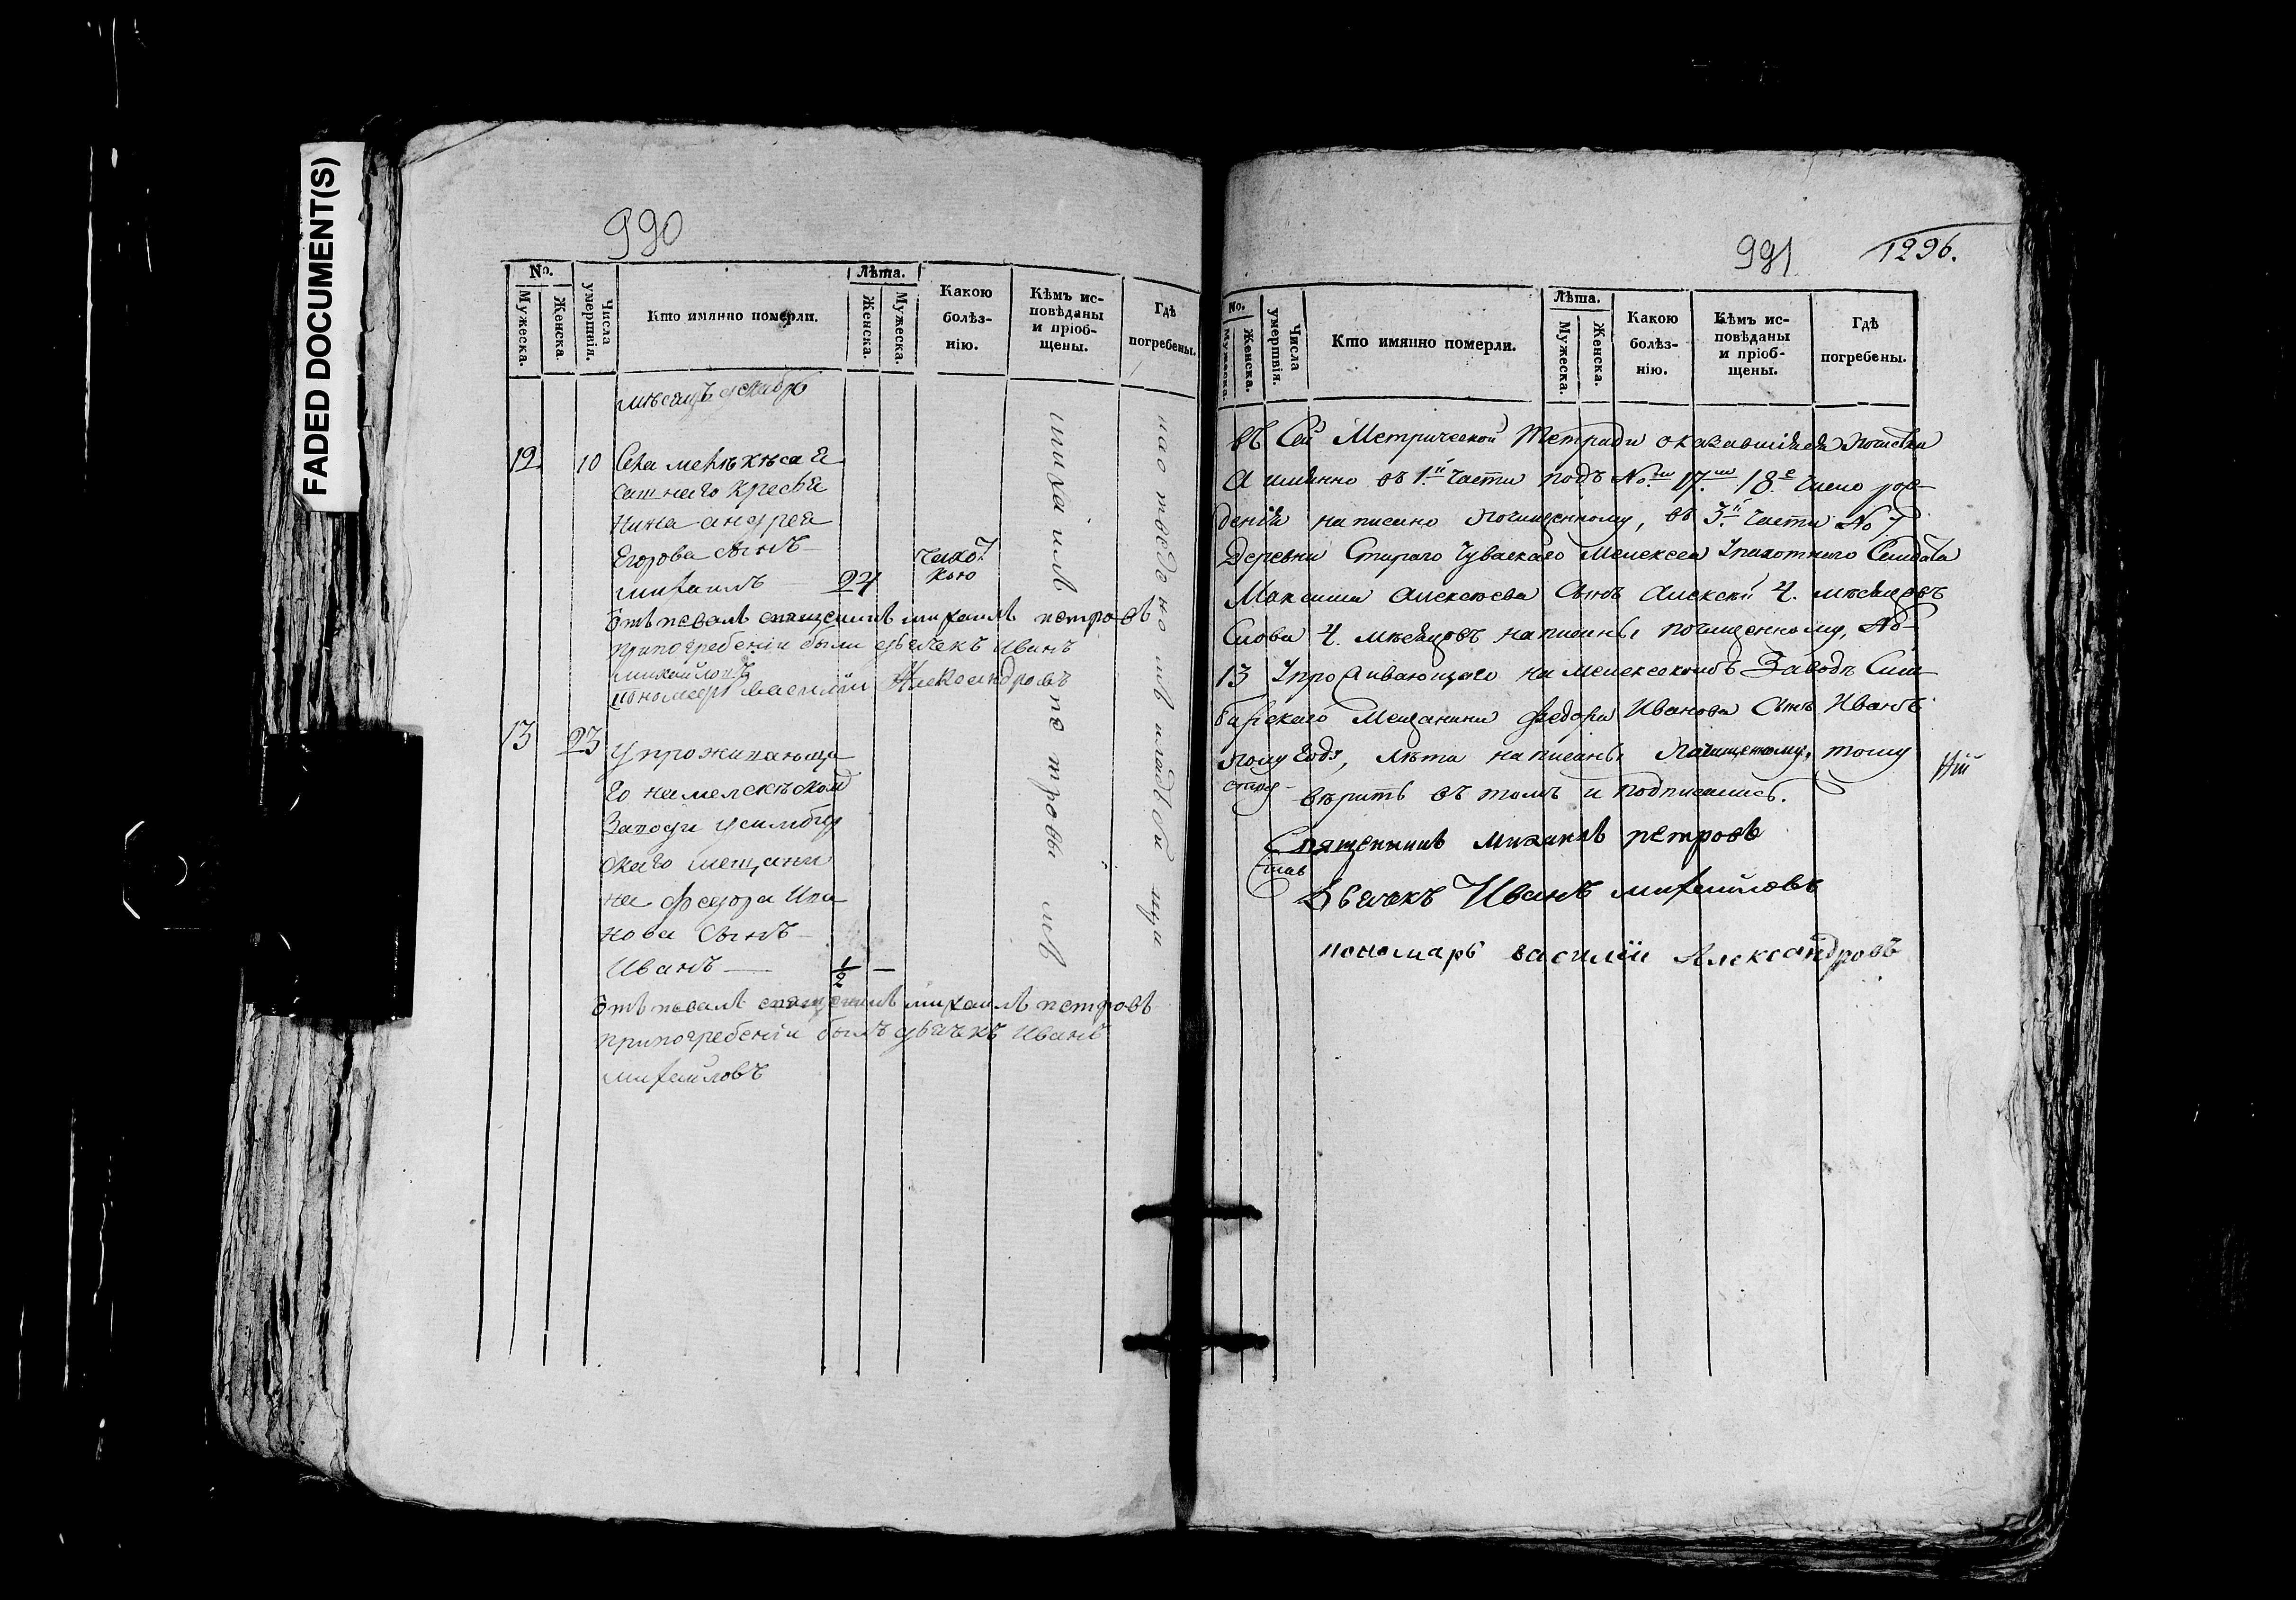 FADED DOCUMENT(S)
990
No.
Мужеска.
Женска.
Числа умертвія.
Кто имянно померли.
Лѣта.
Женска.
Мужеска.
Какою болѣз-
нію.
Кѣмъ ис-
повѣданы
и пріоб-
щены.
Гдѣ
погребены.
мѣсяцъ декабрь
12 10 Села
сашнаго кресья
нина андрея
Егорова сынъ
михаилъ 24 чахот
кою
отъпевалъ священникъ михаилъ петровъ
припогребении были дьячекъ иванъ
михайловъ
пономарь василии Александровъ
13 23 упроживающа
го намелекѣском
Заводи усимбир
скаго мещани
на федора Ива
нова сынъ
Иванъ — 1/2 —
отъпевалъ священникъ михаилъ петровъ
припогребении былъ дьячекъ Иванъ
михайловъ
михаилъ петровъ
991
1296.
No.
Мужеска.
Женска.
Числа умертвія.
Кто имянно померли.
Лѣта.
Мужеска.
Женска.
Какою
болѣз-
нію.
Кѣмъ ис-
повѣданы
и пріоб-
щены.
Гдѣ
погребены.
въ Сей Метрической Тетради оказавшіяся почистки
а имянно въ 1й части подъ No.м 17м 18е число рож-
денія написано почищенному, въ 3й части No 7
Деревни Стараго Чувскаго Мелексеса Солдата
Максима Алексѣева Сынъ Алексѣй 4. мѣсяцовъ
Слова 4. мѣсяцовъ написаны почищенному, No
13 Упроживающаго на Мелексскомъ Заводѣ Сим-
бирскаго Мещанина федора Иванова Сынъ Иванъ
полу Года, лѣта написаны Почищеному, тому
вѣрить въ томъ и подписались.
Священникъ михаилъ петровъ
Дьячекъ Иванъ михайловъ
пономарь василіи Александровъ